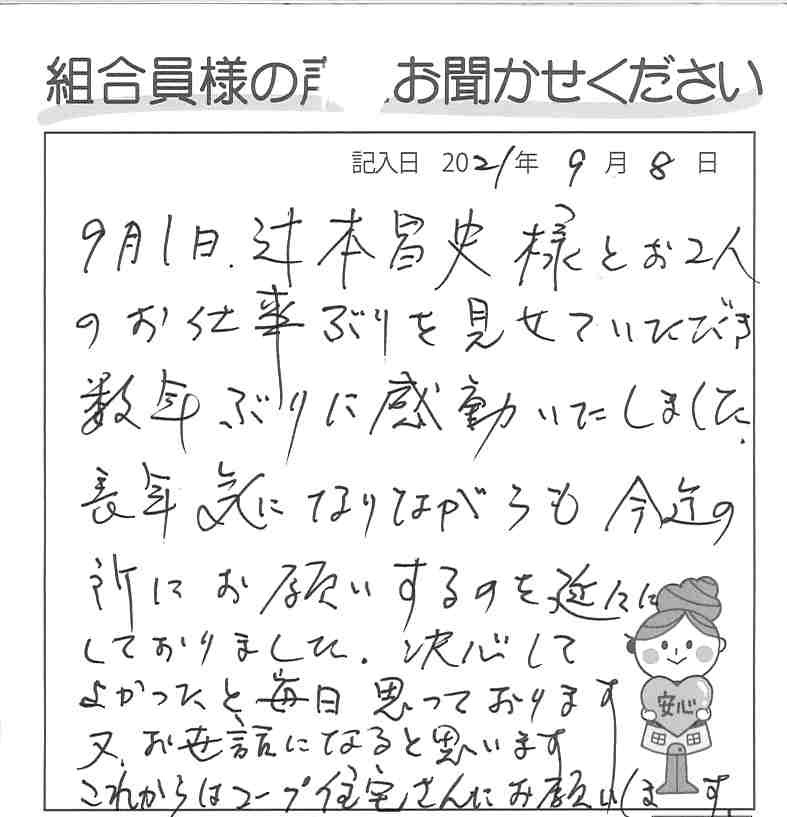 組合員様の声 お聞かせください
記入日 2021年 9月 8日
9月1日、辻本昌史様とお2人
のお仕事ぶりを見せていただき
数年ぶりに感動いたしました、
長年気になりながらも今迄の
所にお願いするのを延々に
しておりました、決心して
よかったと毎日思っております
又、お世話になると思います
これからはコープ住宅さんにお願いします
安心